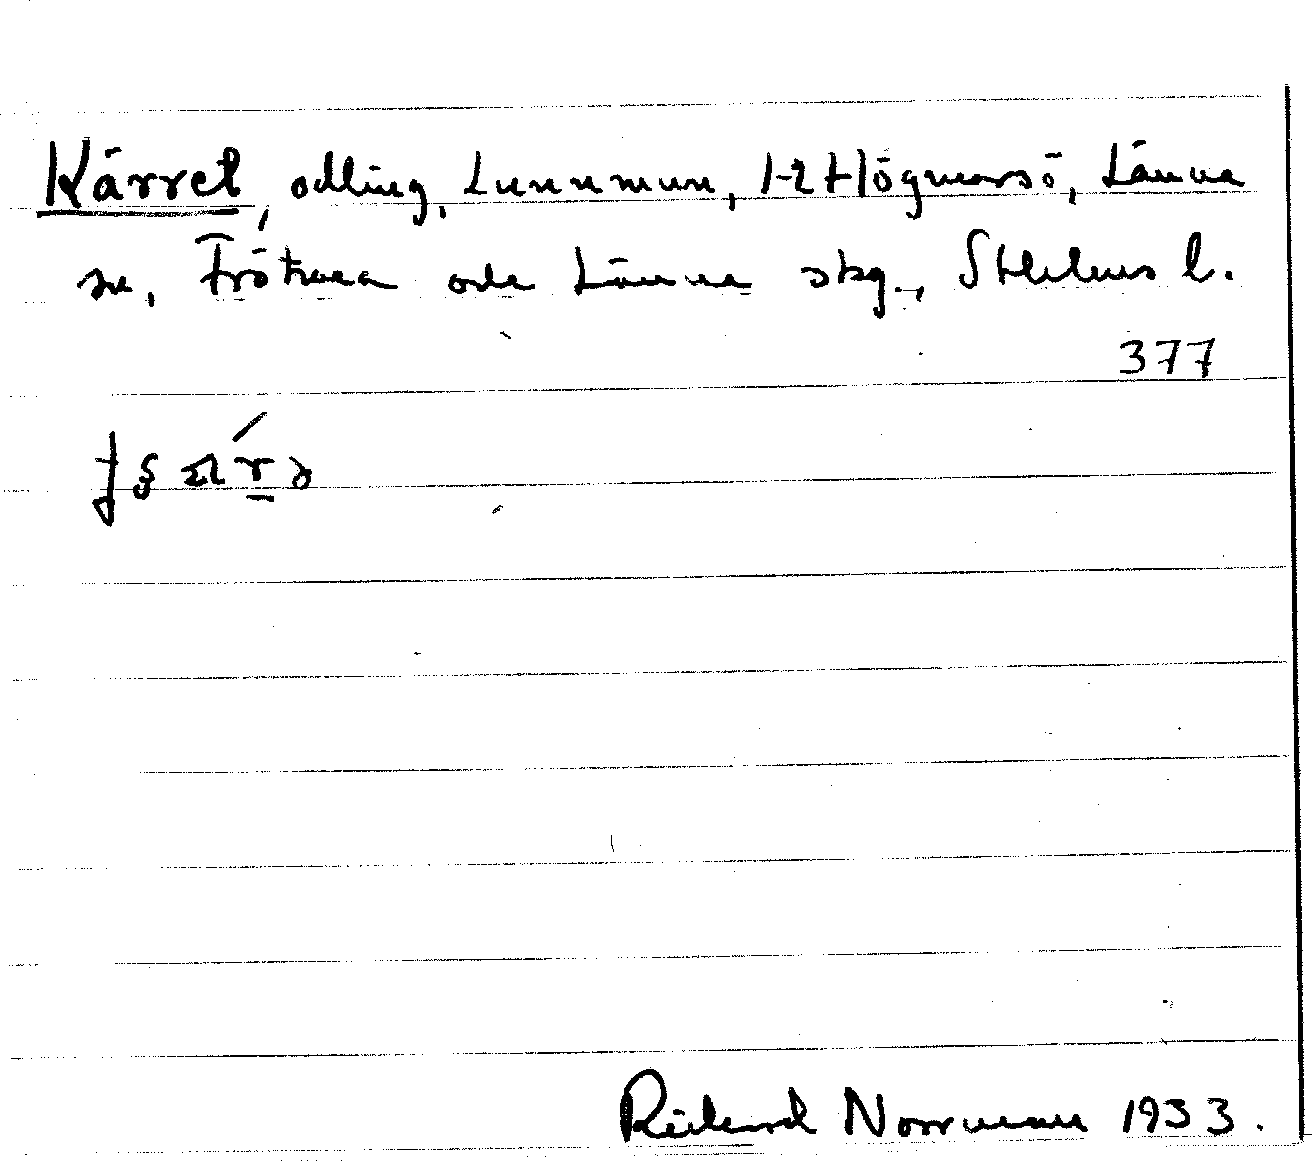 Kärret, odling, Lunnmun, 1-2 Högmarsö, Länna
sn, Frötuna och Länna skg., Sthlms l.
377
Richard Norrman 1933.